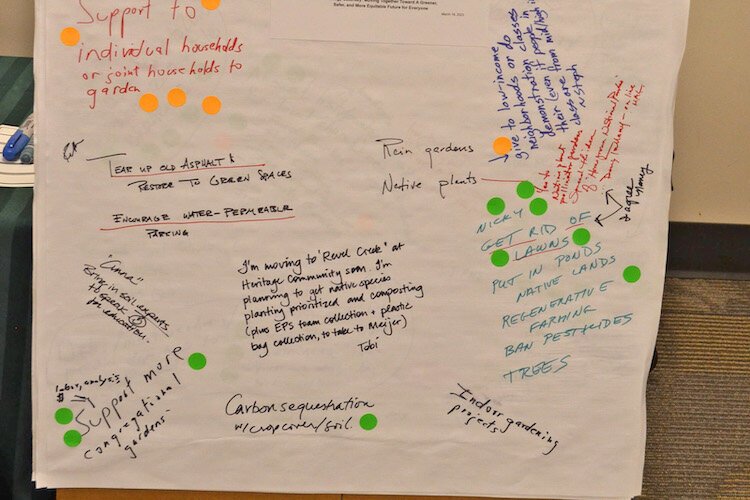 Moving Together Toward A Greener,
Safer, and More Equitable Future for Everyone
March 14, 2023
Support to
individual households
or joint households to
garden
give to low-income
neighborhoods or classes
demonstration if people in
their (even from mid/high i
class are
Rain gardens
Native plants
TEAR UP OLD ASPHALT &
RESTORE TO GREEN SPACES
ENCOURAGE WATER-PERMEABLE
PARKING
Yes to
Native plant
pollinator gardens
Spread the idea
of "Homegrown National Parks"
Doug Tallamy - on line
I agree
Nancy
NICKY
GET RID OF
LAWNS
PUT IN PONDS
NATIVE LANDS
REGENERATIVE
FARMING
BAN PESTICIDES
TREES
Bring in soil experts
to speak
for education.
I'm moving to "Revel Creek" at
Heritage Community soon. I'm
planning to get native species
planting prioritized and composting
(plus EPS foam collection + plastic
bag collection, to take to Meijer)
Tobi
labor, analysis
$
Support more
congregational
gardens
Carbon sequestration
w/crop cover/soil.
Indoor gardening
projects